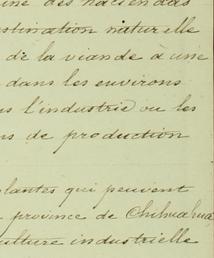 une des haciendas
estination naturelle
de la viande à une
dans les environs
l'industrie ou les
de production
plantes qui peuvent
province de Chihuahua
culture industrielle